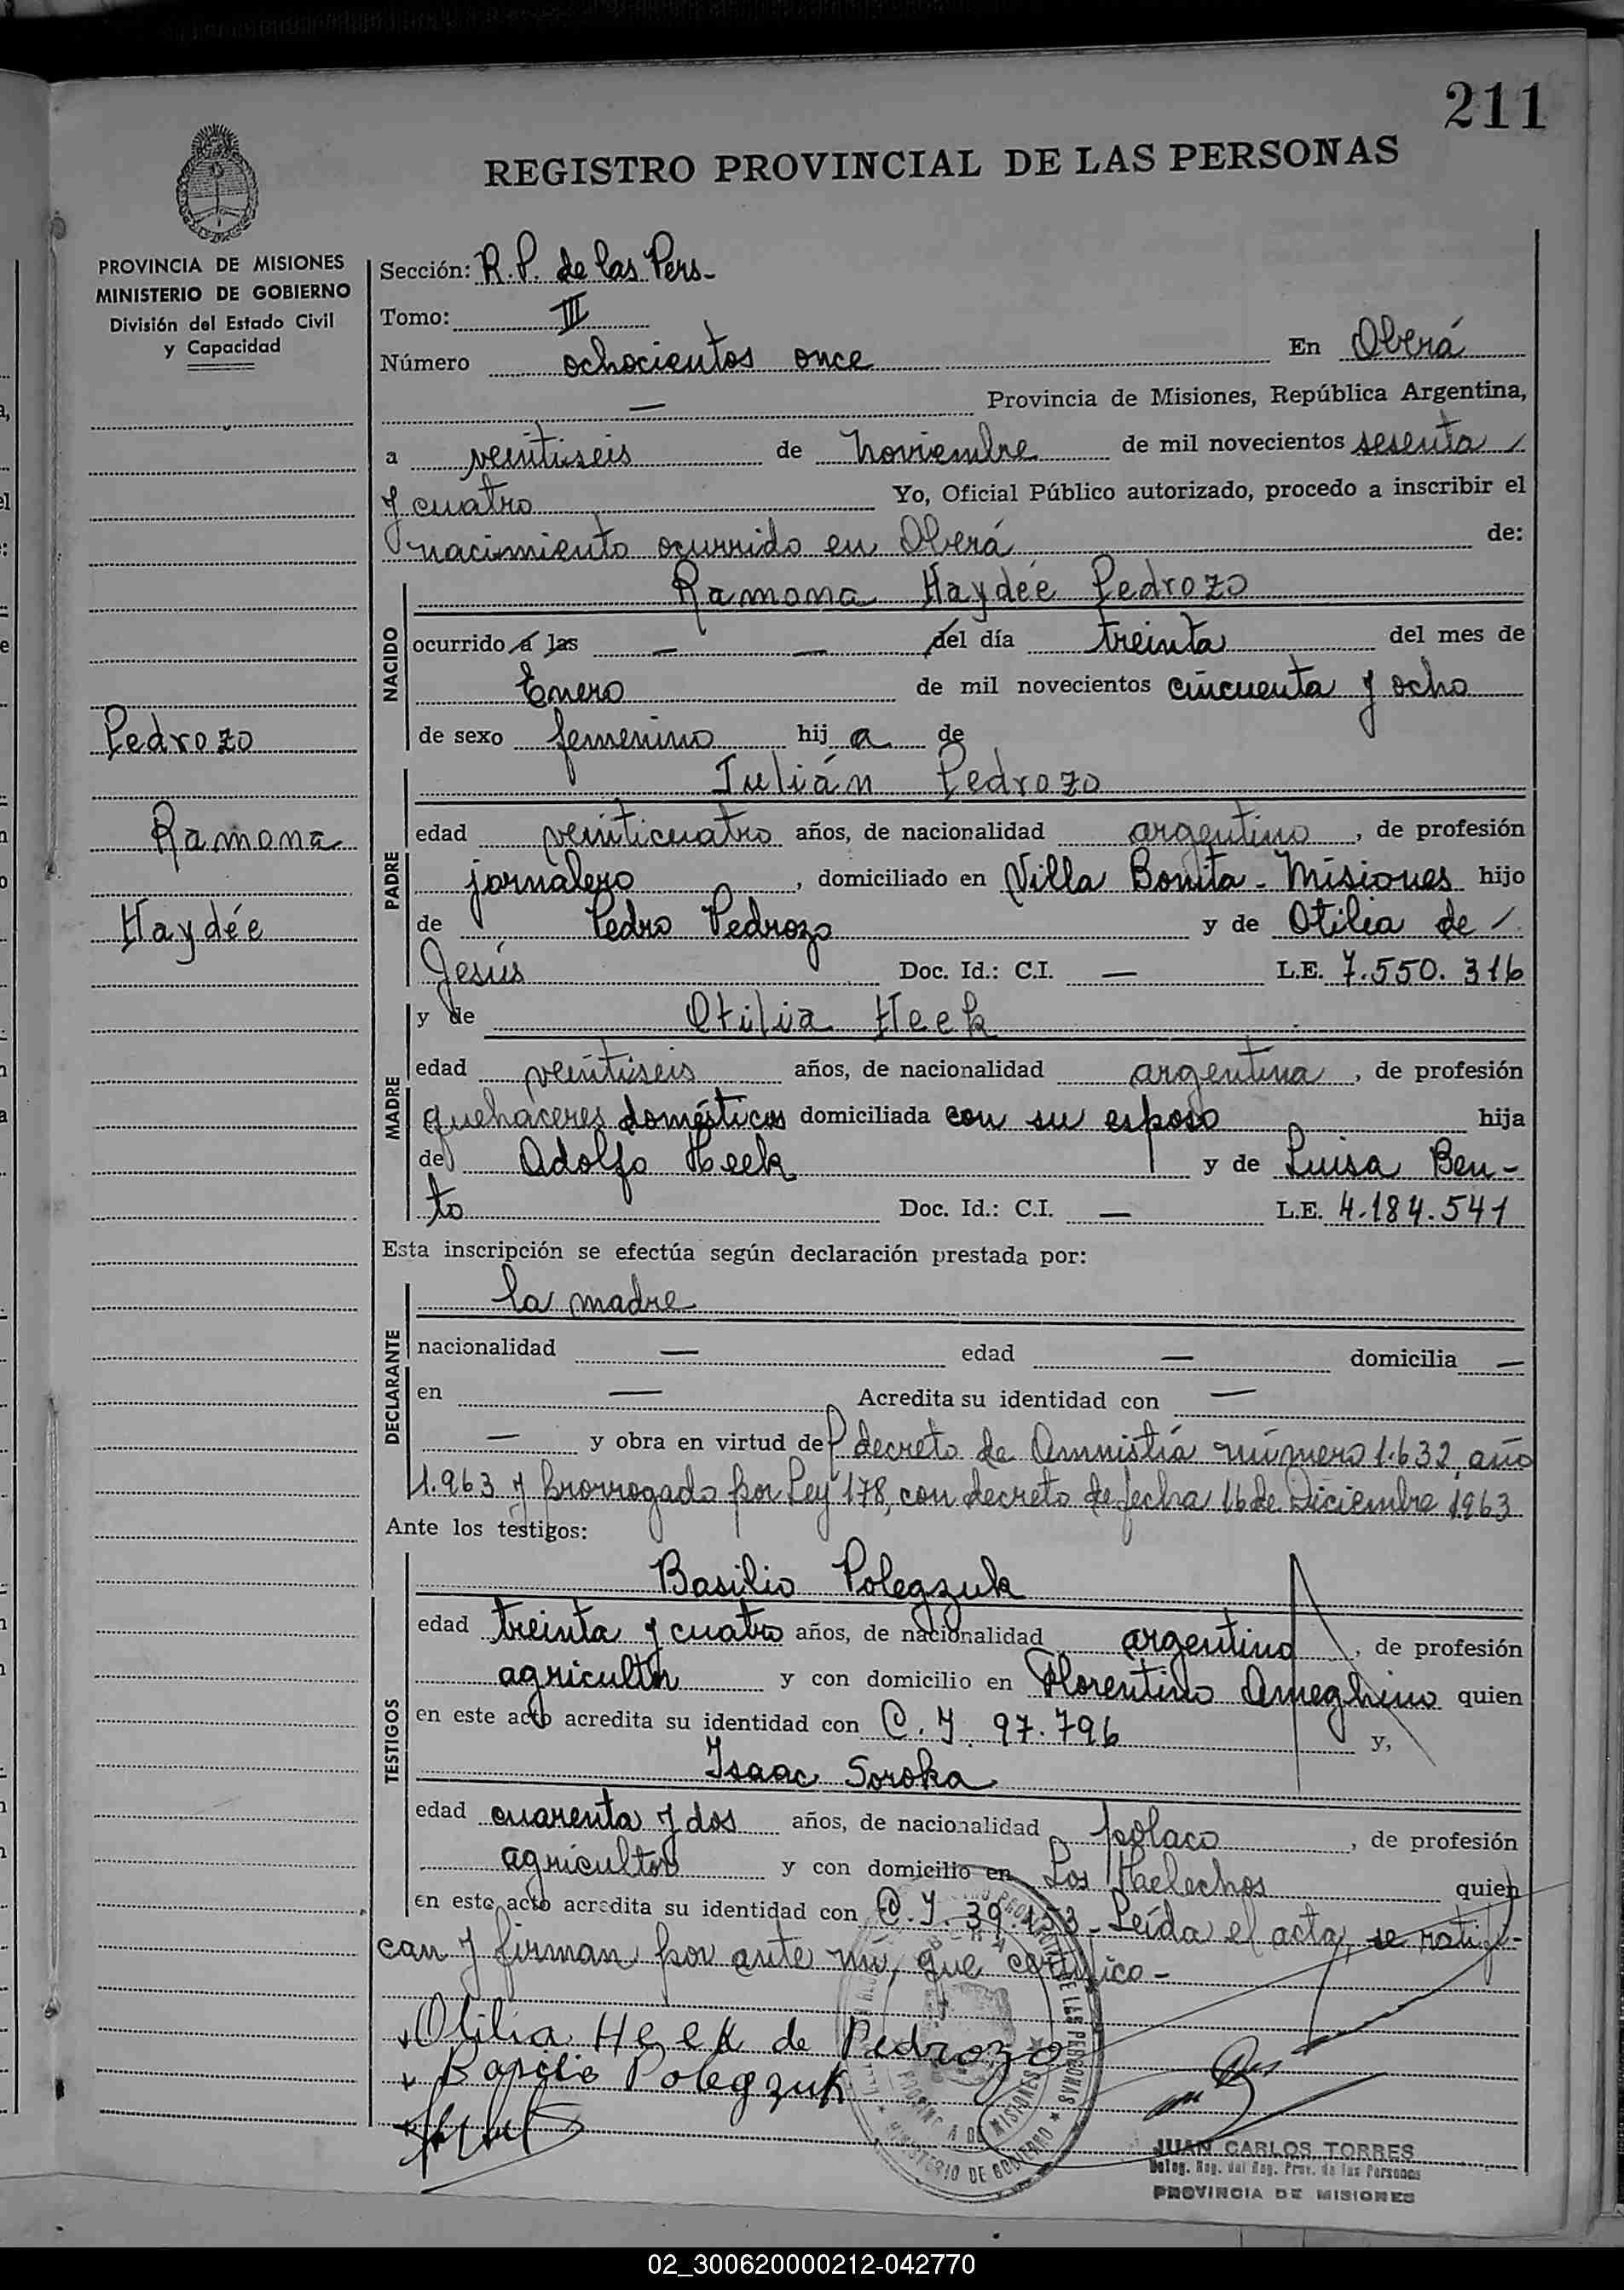 211
REGISTRO PROVINCIAL DE LAS PERSONAS
PROVINCIA DE MISIONES
MINISTERIO DE GOBIERNO
División del Estado Civil
y Capacidad
Pedrozo
Ramona
Haydée
Sección: R.P. de las Pers-
Tomo: III
Número ochocientos once En Oberá
— Provincia de Misiones, República Argentina,
a veintiseis de Noviembre de mil novecientos sesenta
y cuatro Yo, Oficial Público autorizado, procedo a inscribir el
nacimiento ocurrido en Oberá de:
NACIDO
Ramona Haydée Pedrozo
ocurrido a las — — del día treinta del mes de
Enero de mil novecientos cincuenta y ocho
de sexo femenino hij a de
PADRE
Julián Pedrozo
edad veinticuatro años, de nacionalidad argentino, de profesión
jornalero, domiciliado en Villa Bonita - Misiones hijo
de Pedro Pedrozo y de Otilia de
Jesús Doc. Id.: C.I. — L.E. 7.550.316
MADRE
y de Otilia Heek
edad veintiseis años, de nacionalidad argentina, de profesión
quehaceres domésticos domiciliada con su esposo hija
de Adolfo Heek y de Luisa Ben-
to Doc. Id.: C.I. — L.E. 4.184.541
Esta inscripción se efectúa según declaración prestada por:
DECLARANTE
la madre
nacionalidad — edad — domicilia —
en — Acredita su identidad con —
— y obra en virtud del decreto de Amnistía número 1.632, año
1.963 y prorrogado por Ley 178, con decreto de fecha 16 de Diciembre 1963
Ante los testigos:
TESTIGOS
Basilio Polegzuk
edad treinta y cuatro años, de nacionalidad argentino, de profesión
agricultor y con domicilio en Florentino Ameghino quien
en este acto acredita su identidad con C.I. 97.796 y,
Isaac Soroka
edad cuarenta y dos años, de nacionalidad polaco, de profesión
agricultor y con domicilio en Los Helechos quien
en este acto acredita su identidad con C.I. 39.153 - Leída el acta, se ratifi-
can y firman por ante mí, que certifico -
Otilia Heek de Pedrozo
Basilio Polegzuk
DE LAS PERSONAS
MINISTERIO DE GOBIERNO
JUAN CARLOS TORRES
Deleg. Reg. del Reg. Prov. de las Personas
PROVINCIA DE MISIONES
02_300620000212-042770